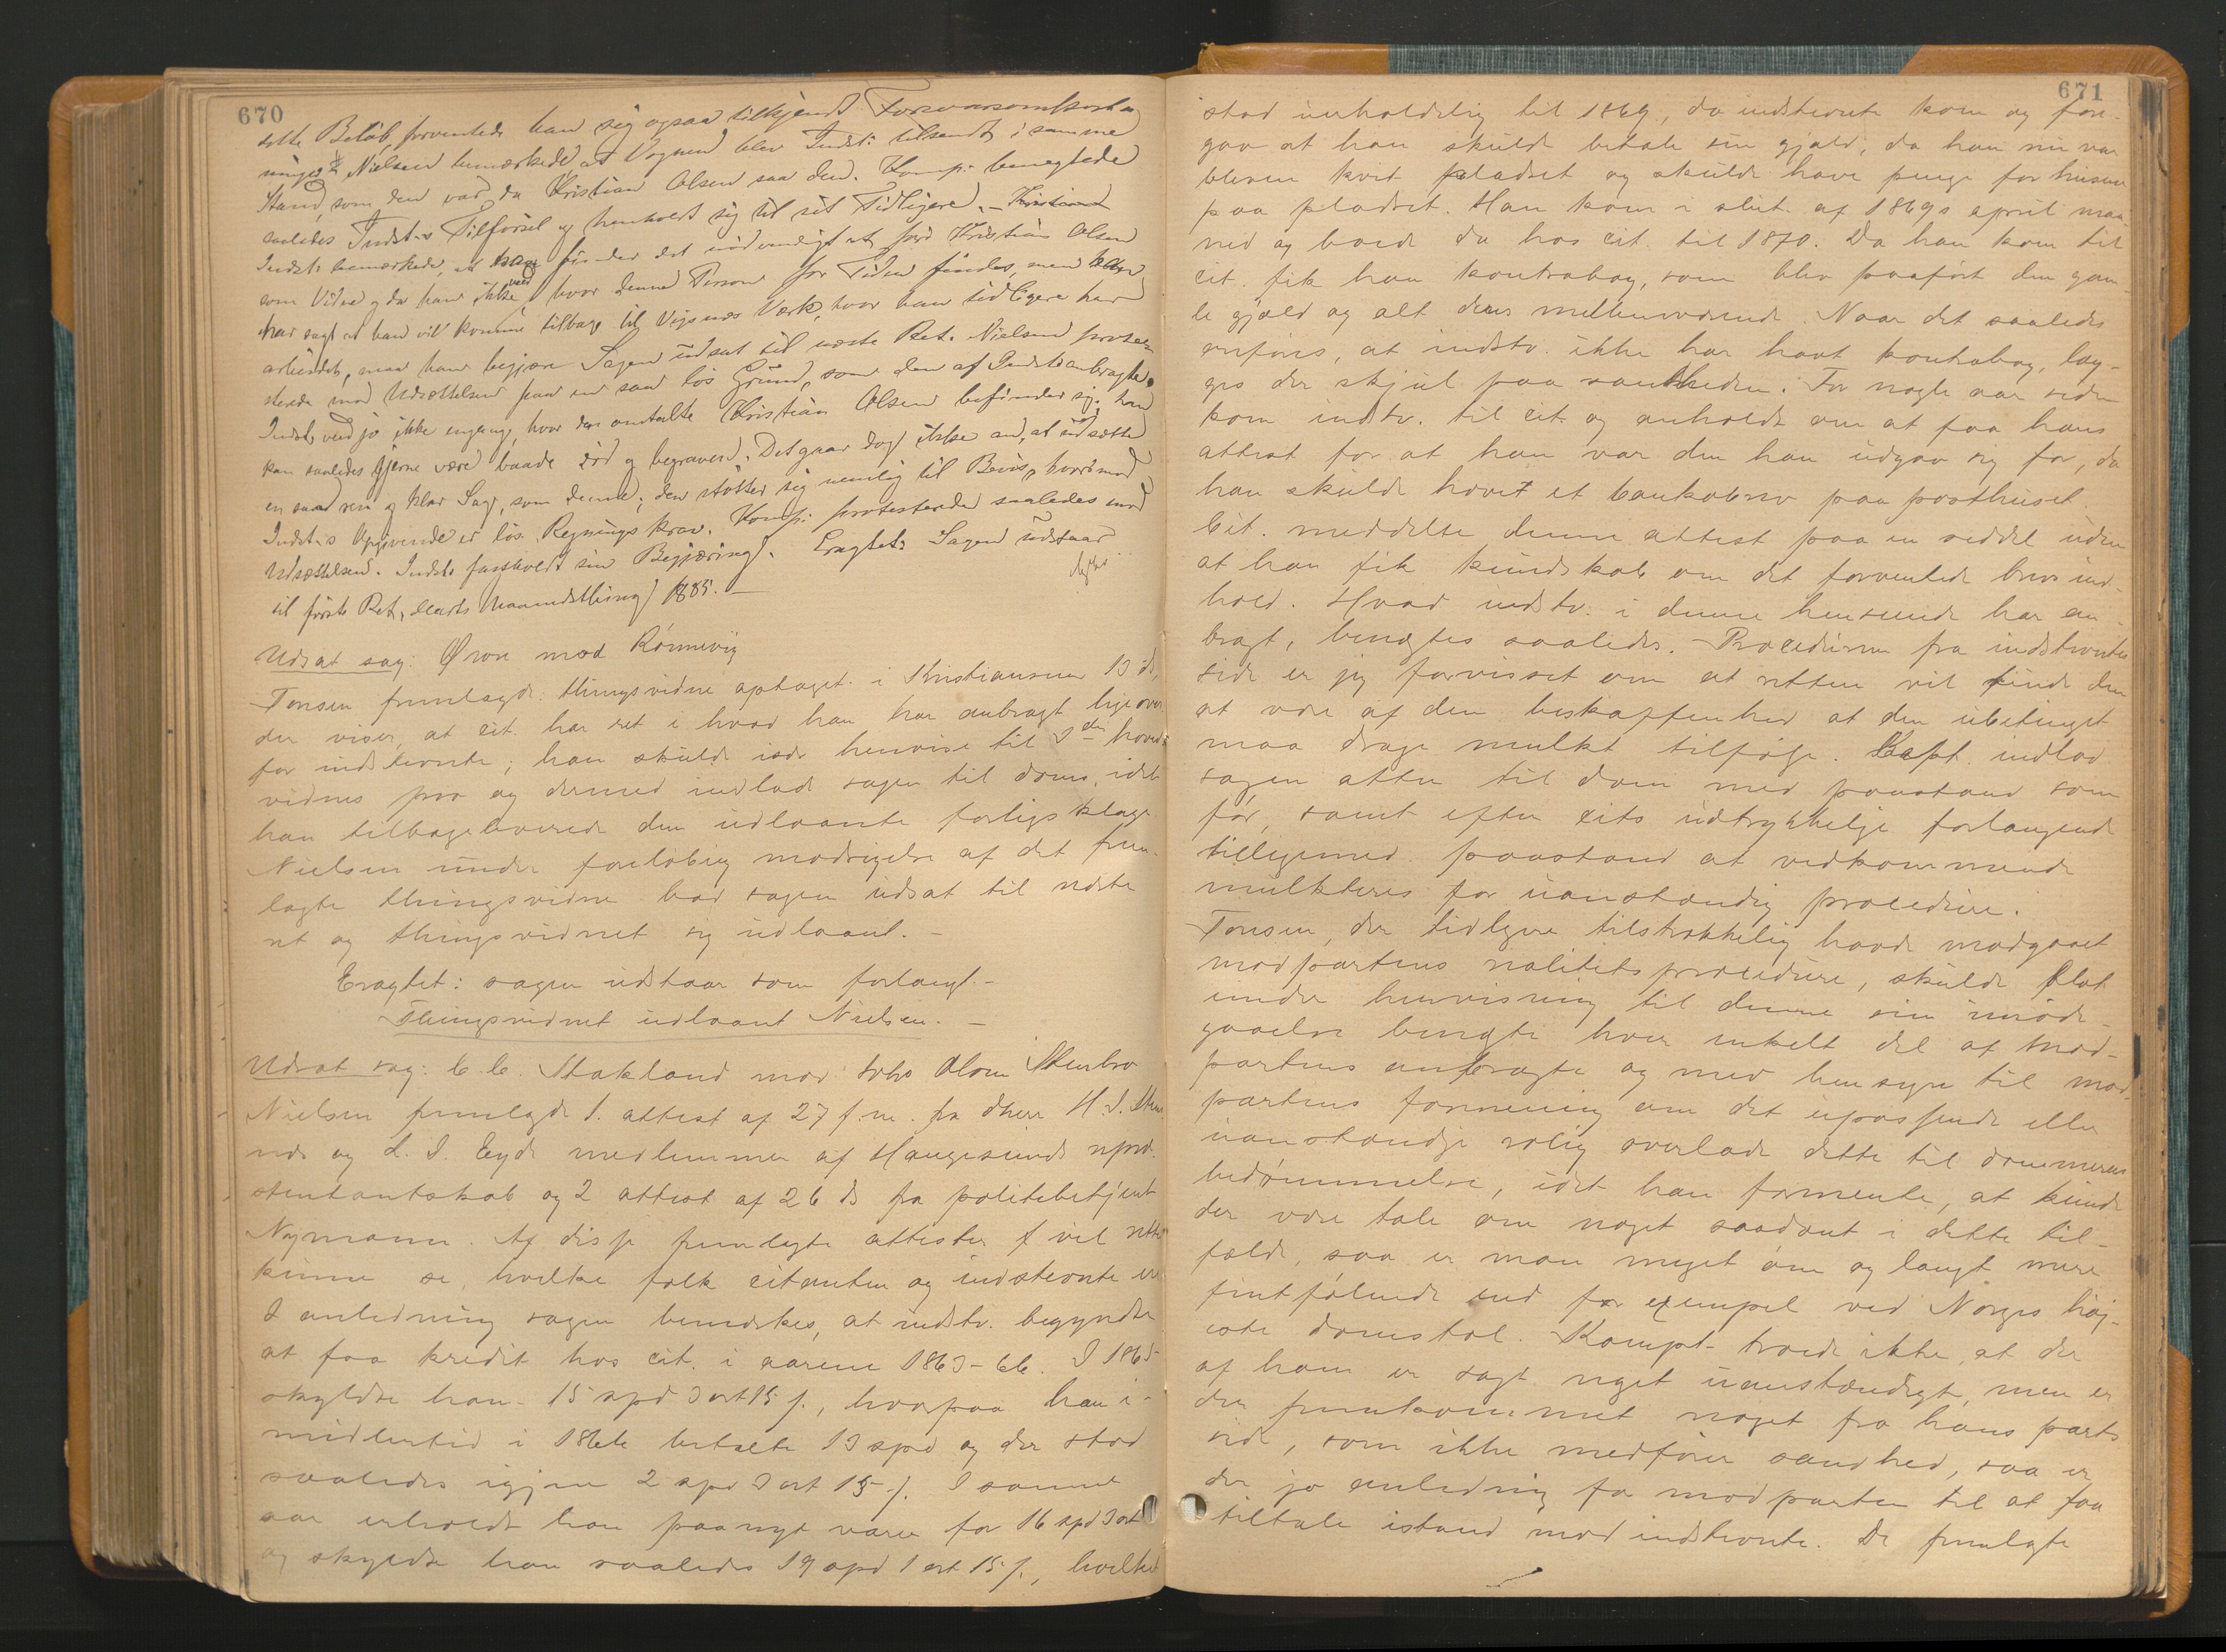 670
dette Beløb, forventede han sig ogsaa tilkjendt Forsvarsomkost-
ninger. Nielsen bemærkede at Vognen blev Indst: tilsendt i samme
Stand, som den var, da Kristian Olsen saa den. Komp: benegtede
saaledes Indst:s Tilførsel og henholdt sig til sit Tidligere. –
Indst: bemærkede, at han finder det nødvendigt at før Kristian Olsen
som Vidne og da han ikke ved hvor denne Person for Tiden findes, men
har sagt at han vil komme tilbage til Vigsnæs Værk, hvor han tidligere har
arbeidet, maa han begjære Sagen udsat til næste Ret. Nielsen prote-
sterede mod Udsættelsen paa en saa løs Grund, som den af Indst: anbragte.
Indst: ved jo ikke engang, hvor den omtalte Kristian Olsen befinder sig; han
kan saaledes gjerne være baade død og begraven. Det gaar dog ikke an, at udsætte
en saa ren og klar Sag, som denne; den støtter sig nemlig til Bevis, hvorimod
Indst:s Opgivende er løs Regnings krav. Komp: protesterede saaledes mod
Udsættelsen. Indst: fastholdt sin Begjæring. Eragtet: Sagen udstaar
til første Ret, Marts Maanedsthing 1885. –
Udsat sag: Øvre mod Rønnevig
Tonsen fremlagde thingsvidne optaget i Kristianssund 13 ds,
der viser, at cit. har ret i hvad han har anbragt ligeover
for indstevnte; han skulde især henvise til 3die hoved-
vidnes prov og dermed indlod sagen til doms, idet
han tilbageleverede den udlaante forligsklage
Nielsen under foreløbig modsigelse af det frem-
lagte thingsvidne bad sagen udsat til næste
ret og thingsvidnet sig udlaant. –
Eragtet: sagen udstaar som forlangt. –
Thingsvidnet udlaant Nielsen. –
Udsat sag: C. C. Stakland mod Olsen Stenbro
Nielsen fremlagde 1. attest af 27 f. m. fra dherr H. J.
og L. J. Eyde medlemmer af Haugesunds repræ-
sentantskab og 2 attest af 26 ds fra politibetjent
Nymann. Af disse fremlagte attester vil retten
kunne se, hvilke folk citanten og indstevnte er
I anledning sagen bemærkes, at indstv. begyndte
at faa kredit hos cit. i aarene 1863-66. I 1865
skyldte han 15 spd 3 ort 15 s., hvorpaa han i-
midlertid i 1866 betalte 13 spd og der stod
saaledes igjen 2 spd 3 ort 15 s. I samme
aar erholdt han paanyt varer for 16 spd 3 ort
og skyldte han saaledes 19 spd 1 ort 15 s., hvilket
671
stod uerholdelig til 1869, da indstevnte kom og fore-
gav at han skulde betale sin gjæld, da han nu var
bleven kvit pladset og skulde have penge for husene
paa pladset. Han kom i slut. af 1869s april maa-
ned og boede da hos cit. til 1870. Da han kom til
cit. fik han kontrabog, som blev paaført den gam-
le gjæld og alt deres mellemværende. Naar det saaledes
anføres, at indstv. ikke har havt kontrabog, læg-
ges der skjul paa sandheden. For nogle aar siden
kom indstv. til cit. og anholdt om at faa hans
attest for at han var den han udgav sig for, da
han skulde hævet et bankobrev paa posthuset.
Cit. meddelte denne attest paa en seddel uden
at han fik kundskab om det forventede brevs ind-
hold. Hvad indstv. i denne henseende har an-
bragt, benegtes saaledes. Proceduren fra indstevntes
side er jeg forvisset om at retten vil finde den
at være af den beskaffenhed at den ubetinget
maa drage mulkt tilfølge. Kopt. indlod
sagen atter til dom med paastand som
før, samt efter cits udtrykkelige forlangende
tilligemed paastand at vedkommende
mulkteres for uanstændig procedure.
Tonsen, der tidligere tilstrækkelig havde modgaaet
modpartens realitetsprocedure, skulde blot
under henvisning til denne sin imøde-
gaaelse benegte hver enkelt del af mod-
partens anbragte og med hensyn til mod-
partens formening om det upassende eller
uanstændige rolig overlade dette til dommerens
bedømmelse, idet han formente, at kunde
der være tale om noget saadant i dette til-
fælde, saa er man meget øm og langt mere
fintfølende end for exempel ved Norges høi-
este domstol. Kompt. troede ikke, at der
af ham er sagt noget uanstændigt, men er
der fremkommet noget fra hans parts
side, som ikke medfører sandhed, saa er
der jo anledning for modparten til at faa
tiltale istand mod indstevnte. De fremlagte